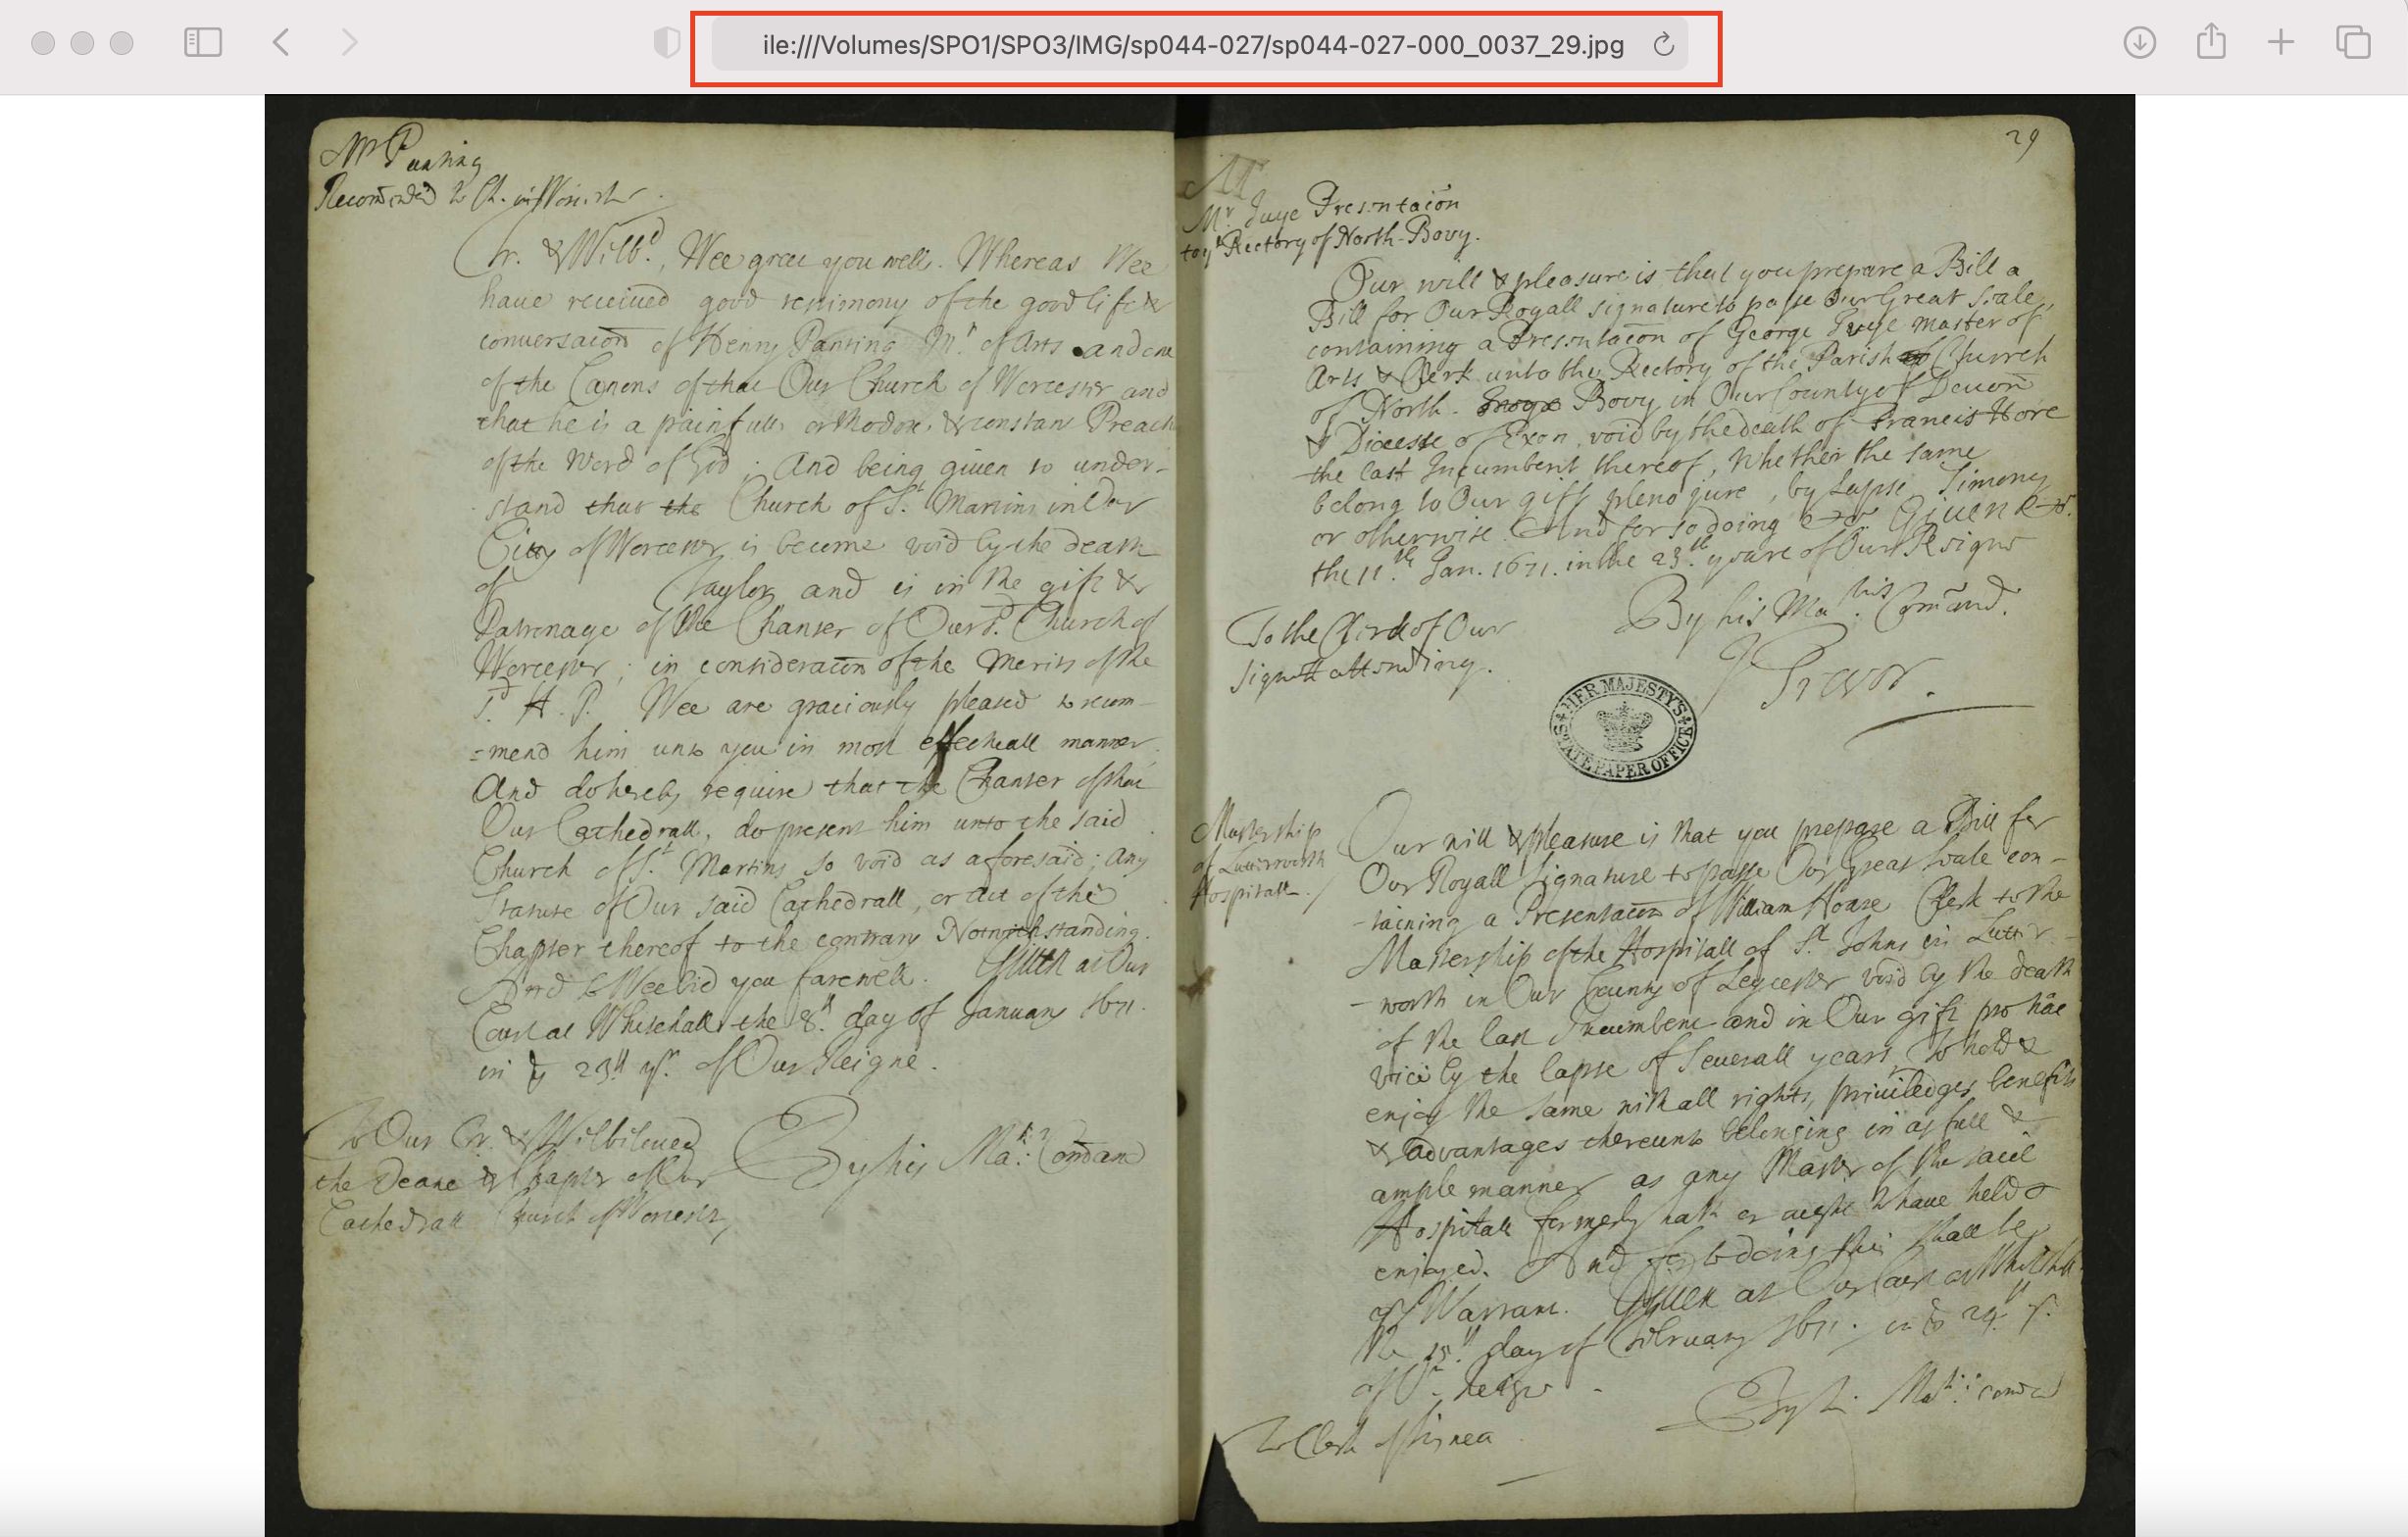 ile:///Volumes/SPO1/SPO3/IMG/sp044-027/sp044-027-000_0037_29.jpg
Mr Panting
Recom̄ended to Ch. in
Tr. & Wilb.d, Wee greet you well. Whereas Wee
haue receiued good testimony of the good life &
conuersac̄on of Henry Panting Mr. of Arts and one
of the Canons of that Our Church of Worcester and
that he is a painfull, orthodox, & constant Preach
of the Word of God; And being giuen to under-
stand that the Church of St. Martins in Our
City of Worcester, is become void by the death
of Taylor and is in the gift &
Patronage of the Chanter of Our sd. Church of
Worcester; in considerac̄on of the Merits of the
sd. H. P. Wee are graciously pleased to recom-
=mend him unto you in most effectuall manner.
And do hereby require that the Chanter of that
Our Cathedrall, do present him unto the said
Church of St. Martins so void as aforesaid; any
Statute of Our said Cathedrall, or Act of the
Chapter thereof to the contrary Notwithstanding.
And so Wee bid you farewell. Giuen at Our
Court at Whitehall the 8th. day of January 1671.
in ye 23th yr. of Our Reigne.
To Our Tr. & Wellbeloued
the Deane & Chapter of Our
Cathedrall Church of Worcester,
By his Mats. Com̄and
29
Mr Tuye Presentac̄on
to ye Rectory of North-Bovy.
Our will & pleasure is that you prepare a Bill a
Bill for Our Royall signature to passe Our Great Seale,
containing a Presentac̄on of George Tuye Master of
Arts & Clerk unto the Rectory of the Parish of Church
of North- Bovy in Our County of Deuon
& Diocesse of Exon, void by the death of Francis Hore
the last Incumbent thereof, Whether the same
belong to Our gift pleno jure, by Lapse, Simony
or otherwise. And for so doing &c. Giuen &c.
the 11.th Jan. 1671. in the 23.th yeare of Our Reigne
By his Ma.ties Com̄and.
To the Clerk of Our
Signett attending.
J Trevor.
HER MAJESTY'S
STATE PAPER OFFICE
Mastership
of Lutterworth
Hospitall.
Our will & pleasure is that you prepare a Bill for
Our Royall Signature to passe Our Great Seale con-
-taining a Presentac̄on of William Hoare Clerk to the
Mastership of the Hospitall of St. Johns in Lutter-
-worth in Our County of Leycester void by the death
of the last Incumbent and in Our gift pro hāc
vice by the lapse of Seuerall years, To hold &
enjoy the same with all rights, priuiledges, benefits
& advantages thereunto belonging in as full &
ample manner as any Master of the said
Hospitall formerly hath or ought to haue held or
enjoyed. And for so doing this shall be
yr Warrant. Giuen at Our Court at Whitehall
the 15th. day of February 1671. in ye 24th yr.
of Or. Reigne.
By h. Mats. com̄d
To Clerk of Signet